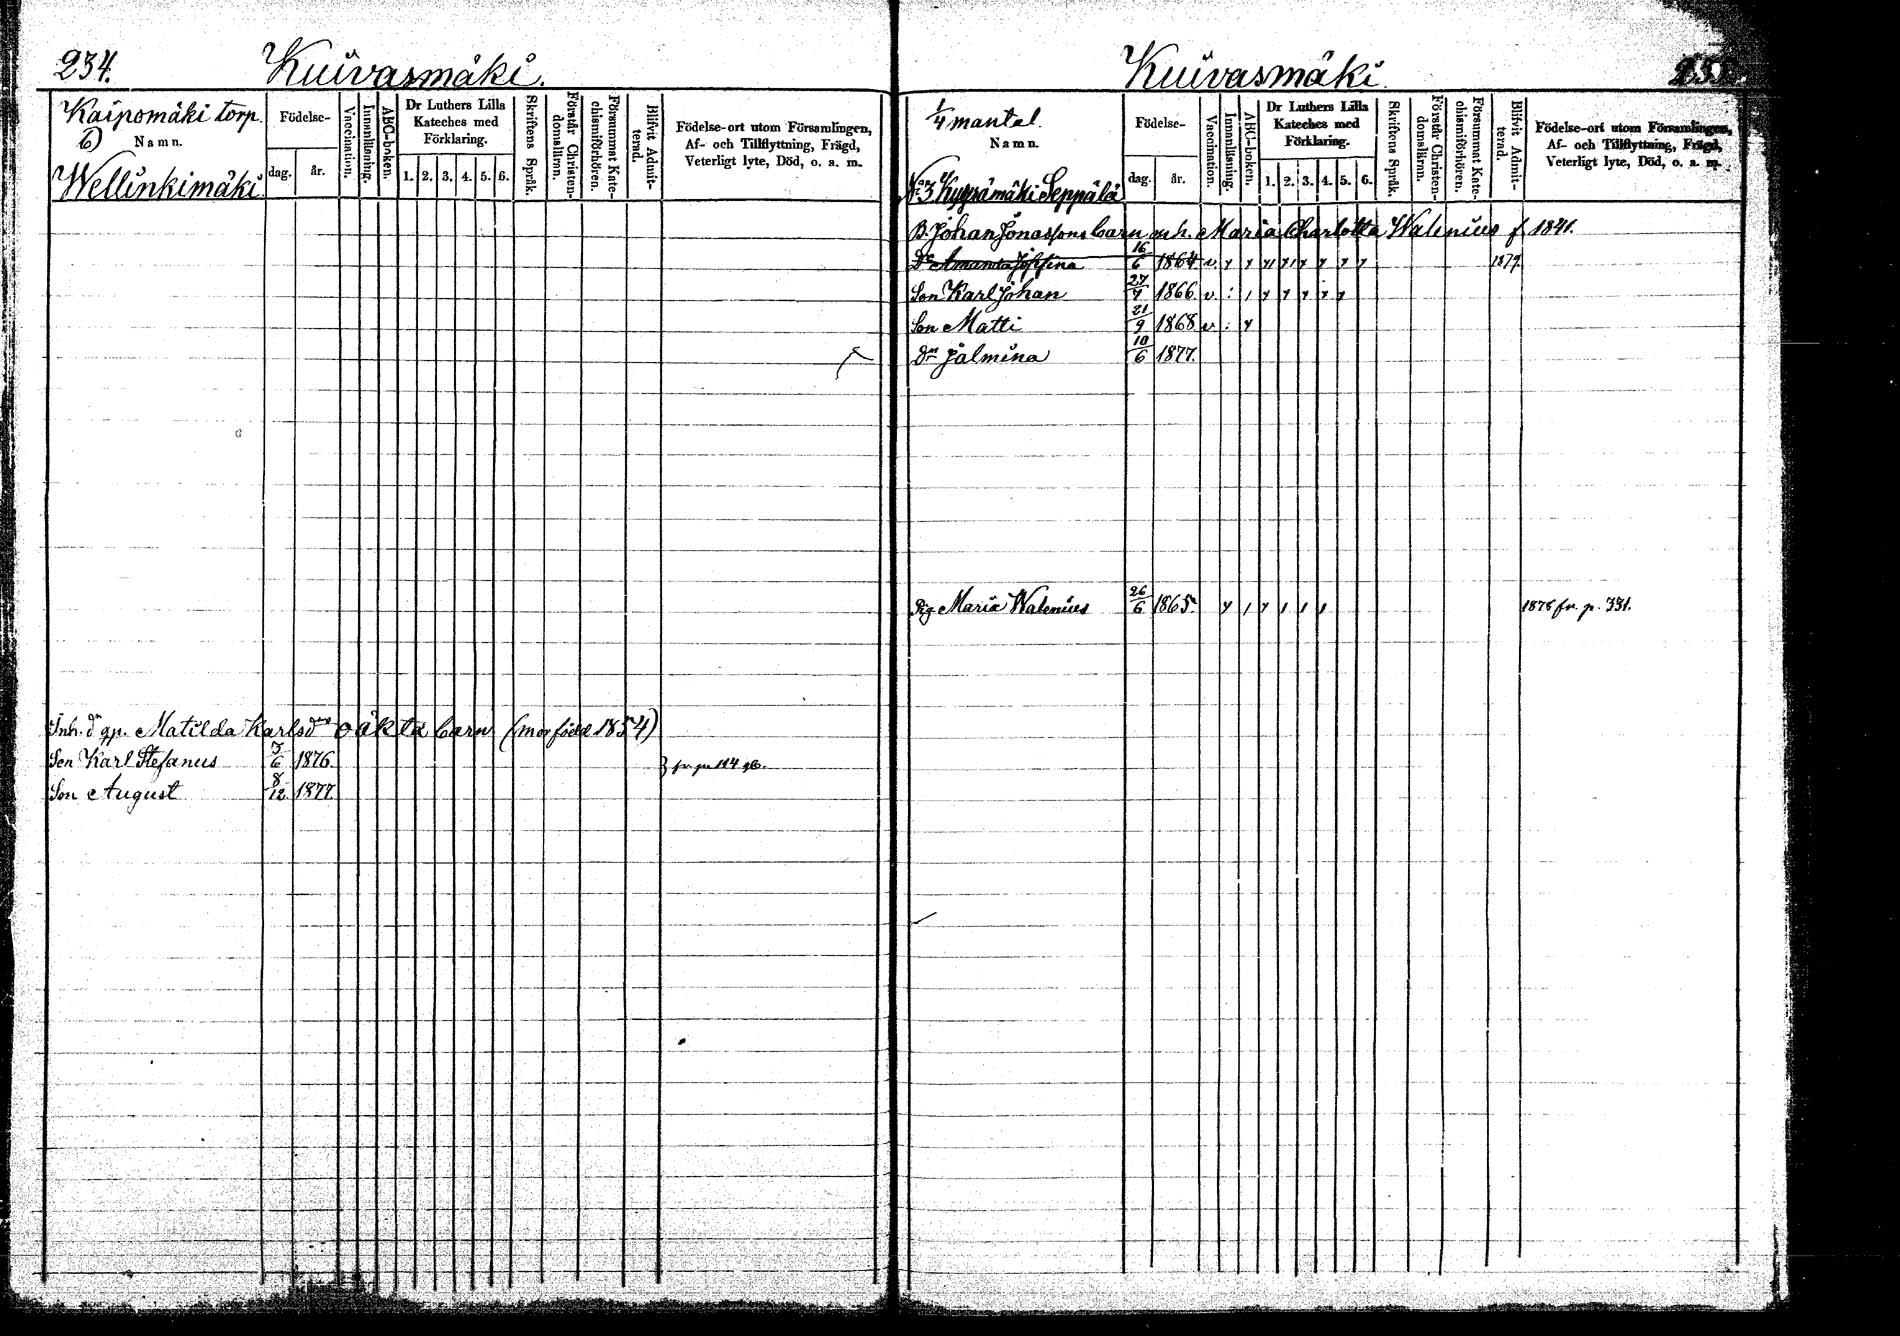 234. Kuivasmäki.
Kaipomäki torp.
b)
Namn.
Wellinkimäki.
Födelse-
dag. år.
Vaccination.
Innanläsning.
ABC-boken.
Dr Luthers Lilla
Kateches med
Förklaring.
1. 2. 3. 4. 5. 6.
Skriftens Språk.
Förstår Christen-
domslärnn.
Försummat Kate-
chismiförhören.
Blifvit Admit-
terad.
Födelse-ort utom Församlingen,
Af- och Tillflyttning, Frägd,
Veterligt lyte, Död, o. a. m.
Inh. dr qp. Matilda Karlsdr oäkta barn (mor född 1854)
Son Karl Stefanus 3/6 1876. } fr. p. 114 gb.
Son August 8/12. 1877.
Kuivasmäki 235.
1/4 mantal.
Namn.
No 3 Kyyrämäki Seppälä
Födelse-
dag. år.
Vaccination.
Innanläsning.
ABC-boken.
Dr Luthers Lilla
Kateches med
Förklaring.
1. 2. 3. 4. 5. 6.
Skriftens Språk.
Förstår Christen-
domslärnn.
Försummat Kate-
chismiförhören.
Blifvit Admit-
terad.
Födelse-ort utom Församlingen,
Af- och Tillflyttning, Frägd,
Veterligt lyte, Död, o. a. m.
B. Johan Jonassons barn och h. Maria Charlotta Walenius f. 1841.
Dr Amanda Josefina 16/6 1864 v. 1879.
Son Karl Johan 27/7 1866. v.
Son Matti 21/9 1868 v.
dr Jalmina 10/6 1877.
Pig. Maria Walenius 26/6 1865. 1878 fr. p. 331.